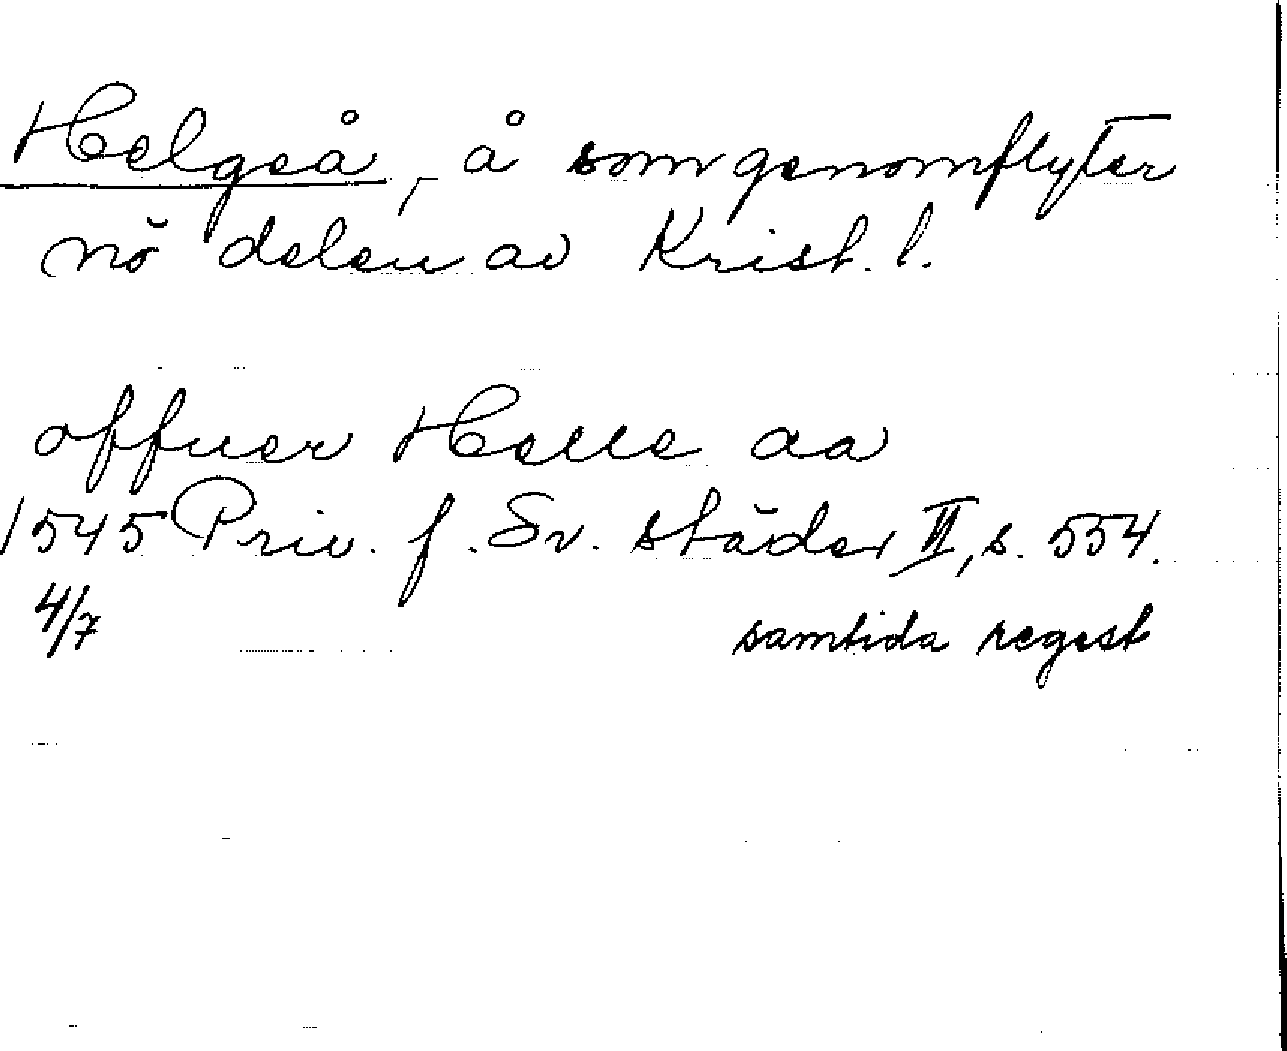 Helgeå, å som genomflyter
nö delen av Krist. l.
offuer Helle aa
1545 Priv. f. Sv. städer II, s. 554.
4/7 samtida regest